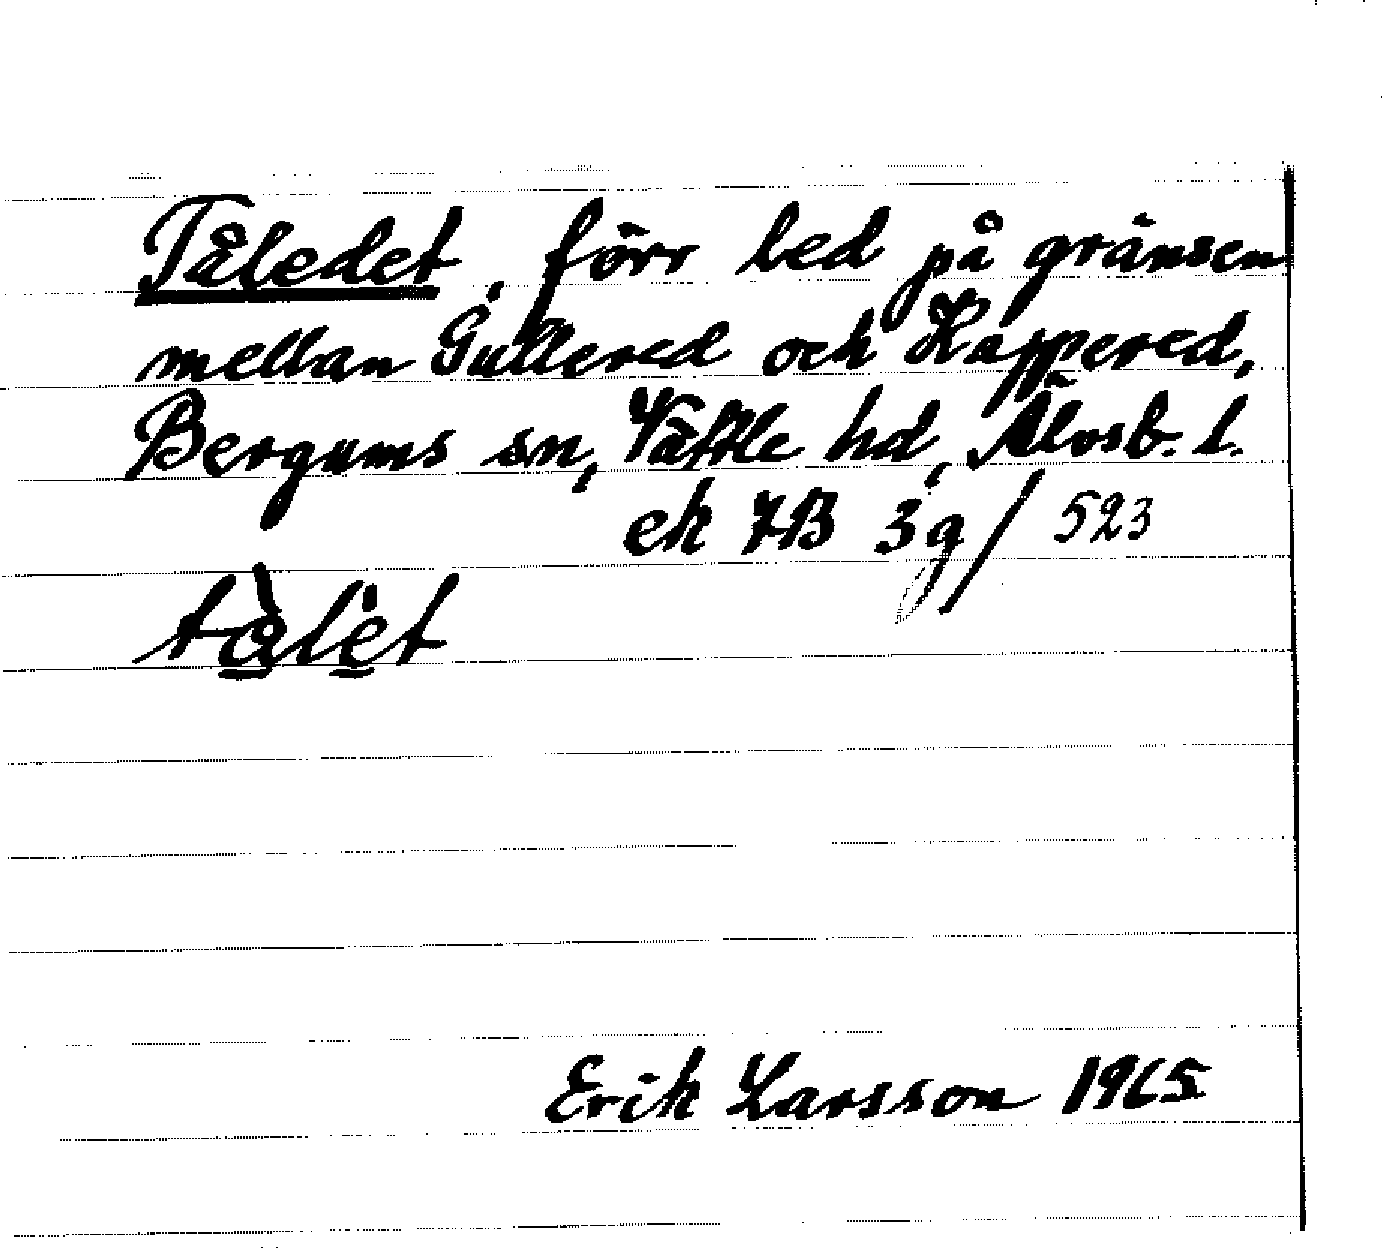 Tåledet, förr led på gränsen
mellan Gullered och Kappered,
Bergums sn, Vättle hd, Älvsb. l.
ek 7B 3g/523
tålet
Erik Larsson 1965